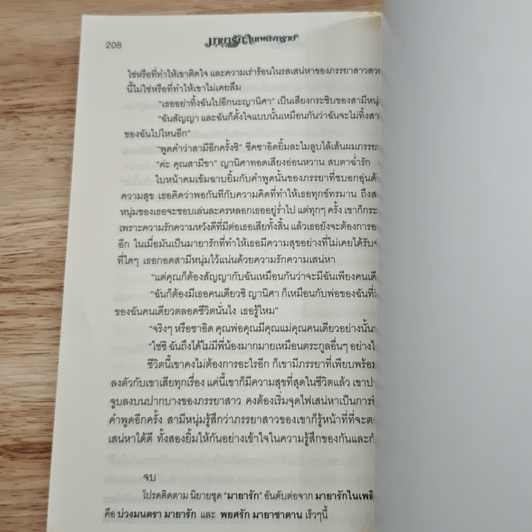 208
ใช่หรือที่ทำให้เขาติดใจ และความเร่าร้อนในรสเสน่หาของภรรยาสาวสวย
นี้ไม่ใช่หรือที่ทำให้เขาไม่เคยลืม
“เธออย่าทิ้งฉันไปอีกนะญานิศา” เป็นเสียงกระซิบของสามีหนุ่ม
“ฉันสัญญา และฉันก็ตั้งใจแบบนั้นเหมือนกันว่าฉันจะไม่ทิ้งสา
ของฉันไปไหนอีก”
“พูดคำว่าสามีอีกครั้งซิ” ชีคซาอิดยิ้มละไมลูบไล้เส้นผมภรรย
“ค่ะ คุณสามีขา” ญานิศาทอดเสียงอ่อนหวาน สบตาฉ่ำรัก
ใบหน้าคมเข้มฉาบยิ้มกับคำพูดนั้นของภรรยาที่ซบอกอุ่นด้ว
ความสุข เธอคิดว่าพอกันทีกับความคิดที่ทำให้เธอทุกข์ทรมาน ถึงส
หนุ่มของเธอจะชอบเล่นละครหลอกเธออยู่ร่ำไป แต่ทุกๆ ครั้ง เขาก็กระ
เพราะความรักความหวังดีที่มีต่อเธอเสียทั้งสิ้น แล้วเธอยังจะต้องการอ
อีก ในเมื่อมันเป็นมายารักที่ทำให้เธอมีความสุขอย่างที่ไม่เคยได้รับจ
ที่ใดๆ เธอกอดสามีหนุ่มไว้แน่นด้วยความรักความเสน่หา
“แต่คุณก็ต้องสัญญากับฉันเหมือนกันว่าจะมีฉันเพียงคนเดีย
“ฉันก็ต้องมีเธอคนเดียวซิ ญานิศา ก็เหมือนกับพ่อของฉันที่
ของฉันคนเดียวตลอดชีวิตนั่นไง เธอรู้ไหม”
“จริงๆ หรือซาอิด คุณพ่อคุณมีคุณแม่คุณคนเดียวอย่างนั้น
“ใช่ซิ ฉันถึงได้ไม่มีพี่น้องมากมายเหมือนตระกูลอื่นๆ อย่างไ
ชีวิตนี้เขาคงไม่ต้องการอะไรอีก ก็เขามีภรรยาที่เพียบพร้อม
ลงตัวกับเขาเสียทุกเรื่อง แค่นี้เขาก็มีความสุขที่สุดในชีวิตแล้ว เขาป
จูบลงบนปากบางของภรรยาสาว คงต้องเริ่มจุดไฟเสน่หาเป็นการย้
คำพูดอีกครั้ง สามีหนุ่มรู้สึกว่าภรรยาสาวของเขาก็รู้หน้าที่ที่จะต
เสน่หาได้ดี ทั้งสองยิ้มให้กันอย่างเข้าใจในความรู้สึกของกันและก
จบ
โปรดติดตาม นิยายชุด “มายารัก” อันดับต่อจาก มายารักในเพลิ
คือ บ่วงมนตรา มายารัก และ พยศรัก มายาซาตาน เร็วๆนี้